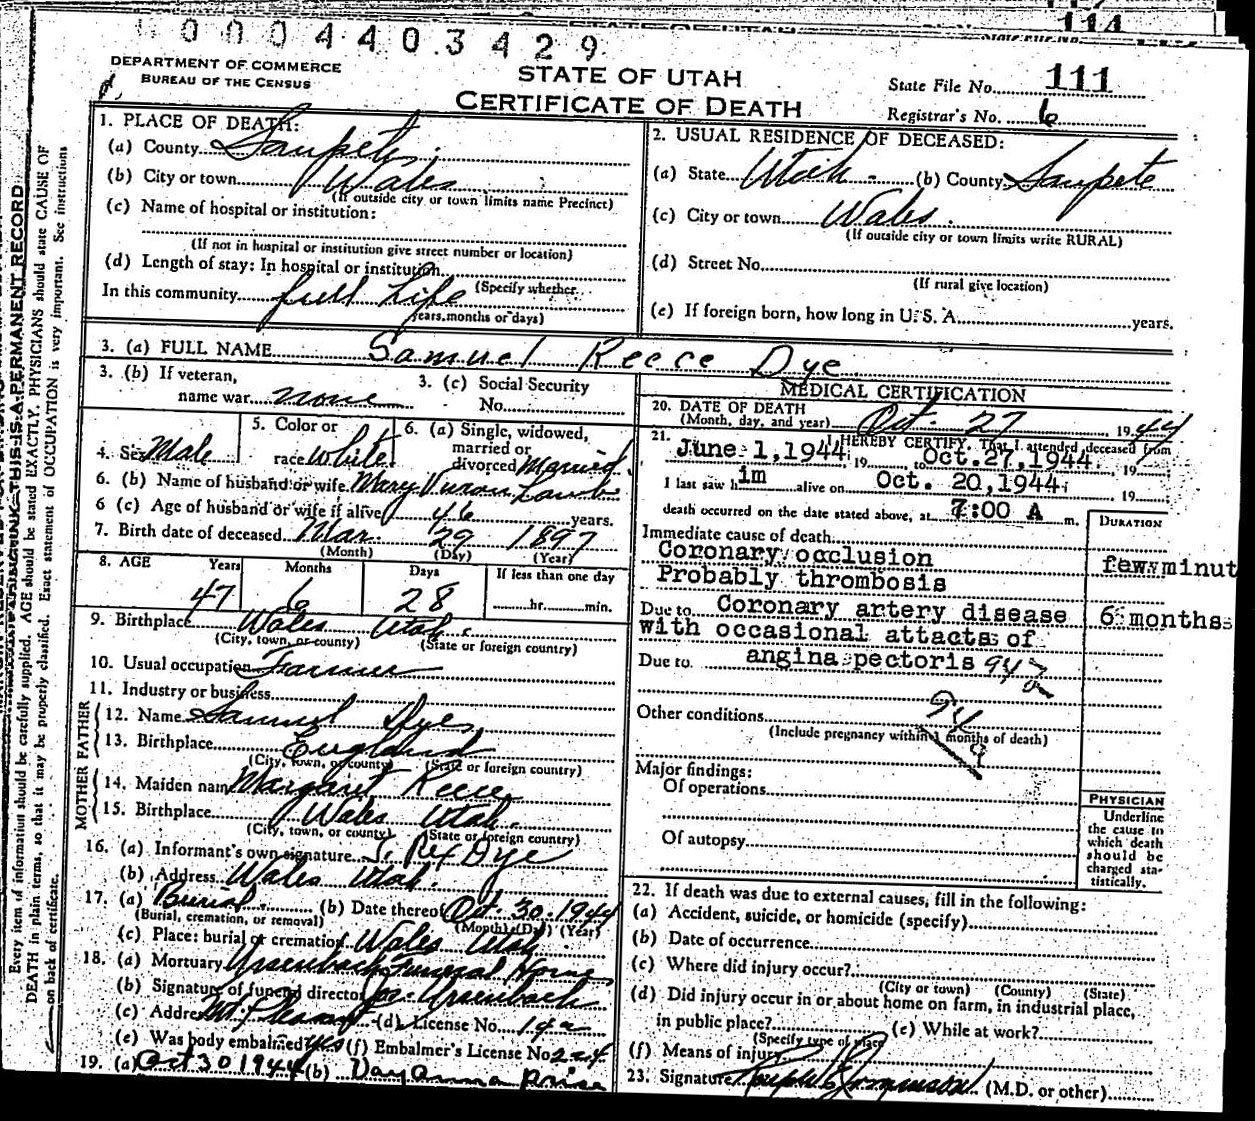 114
0 0 0 4 4 0 3 4 2 9
DEPARTMENT OF COMMERCE
BUREAU OF THE CENSUS
STATE OF UTAH
CERTIFICATE OF DEATH
State File No. 111
Registrar's No. 6
1. PLACE OF DEATH:
(a) County Sanpete
(b) City or town Wales
(If outside city or town limits name Precinct)
(c) Name of hospital or institution:
(If not in hospital or institution give street number or location)
(d) Length of stay: In hospital or institution
(Specify whether
In this community full Life
years, months or days)
2. USUAL RESIDENCE OF DECEASED:
(a) State Utah (b) County Sanpete
(c) City or town Wales
(If outside city or town limits write RURAL)
(d) Street No.
(If rural give location)
(e) If foreign born, how long in U. S. A. years.
3. (a) FULL NAME Samuel Reece Dye
3. (b) If veteran,
name war none
3. (c) Social Security
No.
4. Sex Male
5. Color or
race White
6. (a) Single, widowed,
married or
divorced Married
6. (b) Name of husband or wife Mary Lamb
6 (c) Age of husband or wife if alive 46 years.
7. Birth date of deceased Mar. 29 1897
(Month) (Day) (Year)
8. AGE Years Months Days If less than one day
47 6 28 hr. min.
9. Birthplace Wales Utah
(City, town, or county) (State or foreign country)
10. Usual occupation Farmer
11. Industry or business
FATHER
12. Name Samuel Dye
13. Birthplace England
(City, town, or county) (State or foreign country)
MOTHER
14. Maiden name Margaret Reece
15. Birthplace Wales Utah
(City, town, or county) (State or foreign country)
16. (a) Informant's own signature S. Rex Dye
(b) Address Wales Utah.
17. (a) Burial (b) Date thereof Oct. 30. 1944
(Burial, cremation, or removal) (Month) (Day) (Year)
(c) Place: burial or cremation Wales Utah
18. (a) Mortuary Ursenbach Funeral Home
(b) Signature of funeral director Ursenbach
(c) Address Mt. Pleasant (d) License No.
(e) Was body embalmed yes (f) Embalmer's License No. 224
19. (a) Oct 30 1944 (b)
MEDICAL CERTIFICATION
20. DATE OF DEATH
(Month, day, and year) Oct. 27 1944
21. I HEREBY CERTIFY, That I attended deceased from
June 1,1944, 19 to Oct.27,1944, 19
I last saw him alive on Oct. 20,1944, 19
death occurred on the date stated above, at 7:00 A m.
DURATION
Immediate cause of death
Coronary occlusion few minut
Probably thrombosis
Due to Coronary artery disease 6 months
with occasional attacts of
Due to angina pectoris 94
Other conditions
(Include pregnancy within 3 months of death)
Major findings:
Of operations
Of autopsy
PHYSICIAN
Underline
the cause to
which death
should be
charged sta-
tistically.
22. If death was due to external causes, fill in the following:
(a) Accident, suicide, or homicide (specify)
(b) Date of occurrence
(c) Where did injury occur?
(City or town) (County) (State)
(d) Did injury occur in or about home on farm, in industrial place,
in public place? (e) While at work?
(Specify type of place)
(f) Means of injury
23. Signature (M.D. or other)
THIS IS A PERMANENT RECORD
Every item of information should be carefully supplied. AGE should be stated EXACTLY. PHYSICIANS should state CAUSE OF
DEATH in plain terms, so that it may be properly classified. Exact statement of OCCUPATION is very important. See instructions
on back of certificate.